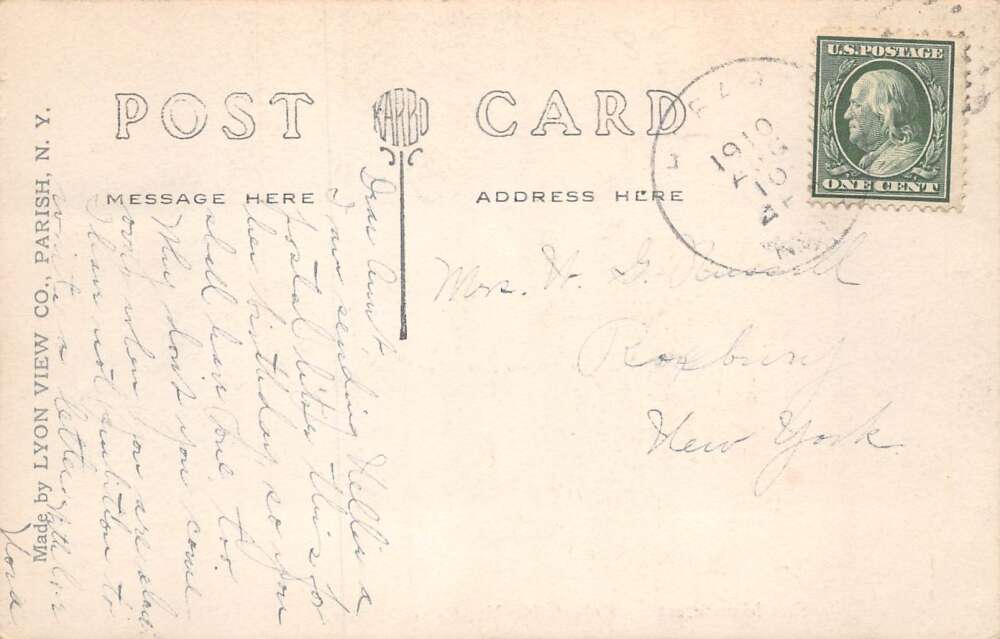 POST KARBO CARD
MESSAGE HERE
ADDRESS HERE
U.S. POSTAGE
ONE CENT
1910
Mrs. H. G. Russell
Roxbury
New York.
Dear Aunt,
I am sending Nellie a
postal like this for
her birthday, so you
shall have one too.
Why don't you come
over when you are alone
I have not ambition to
write a letter. With love
Made by LYON VIEW CO., PARISH, N. Y.